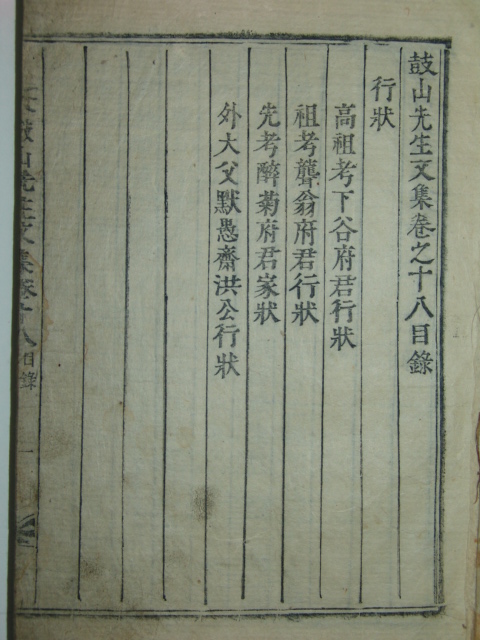 鼓山先生文集卷之十八目錄
行狀
高祖考下谷府君行狀
祖考聾翁府君行狀
先考醉菊府君家狀
外大父默愚齋洪公行狀
鼓山先生文集卷十八目錄
一